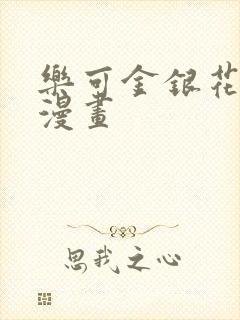 樂可金銀花
漫畫
思我之心